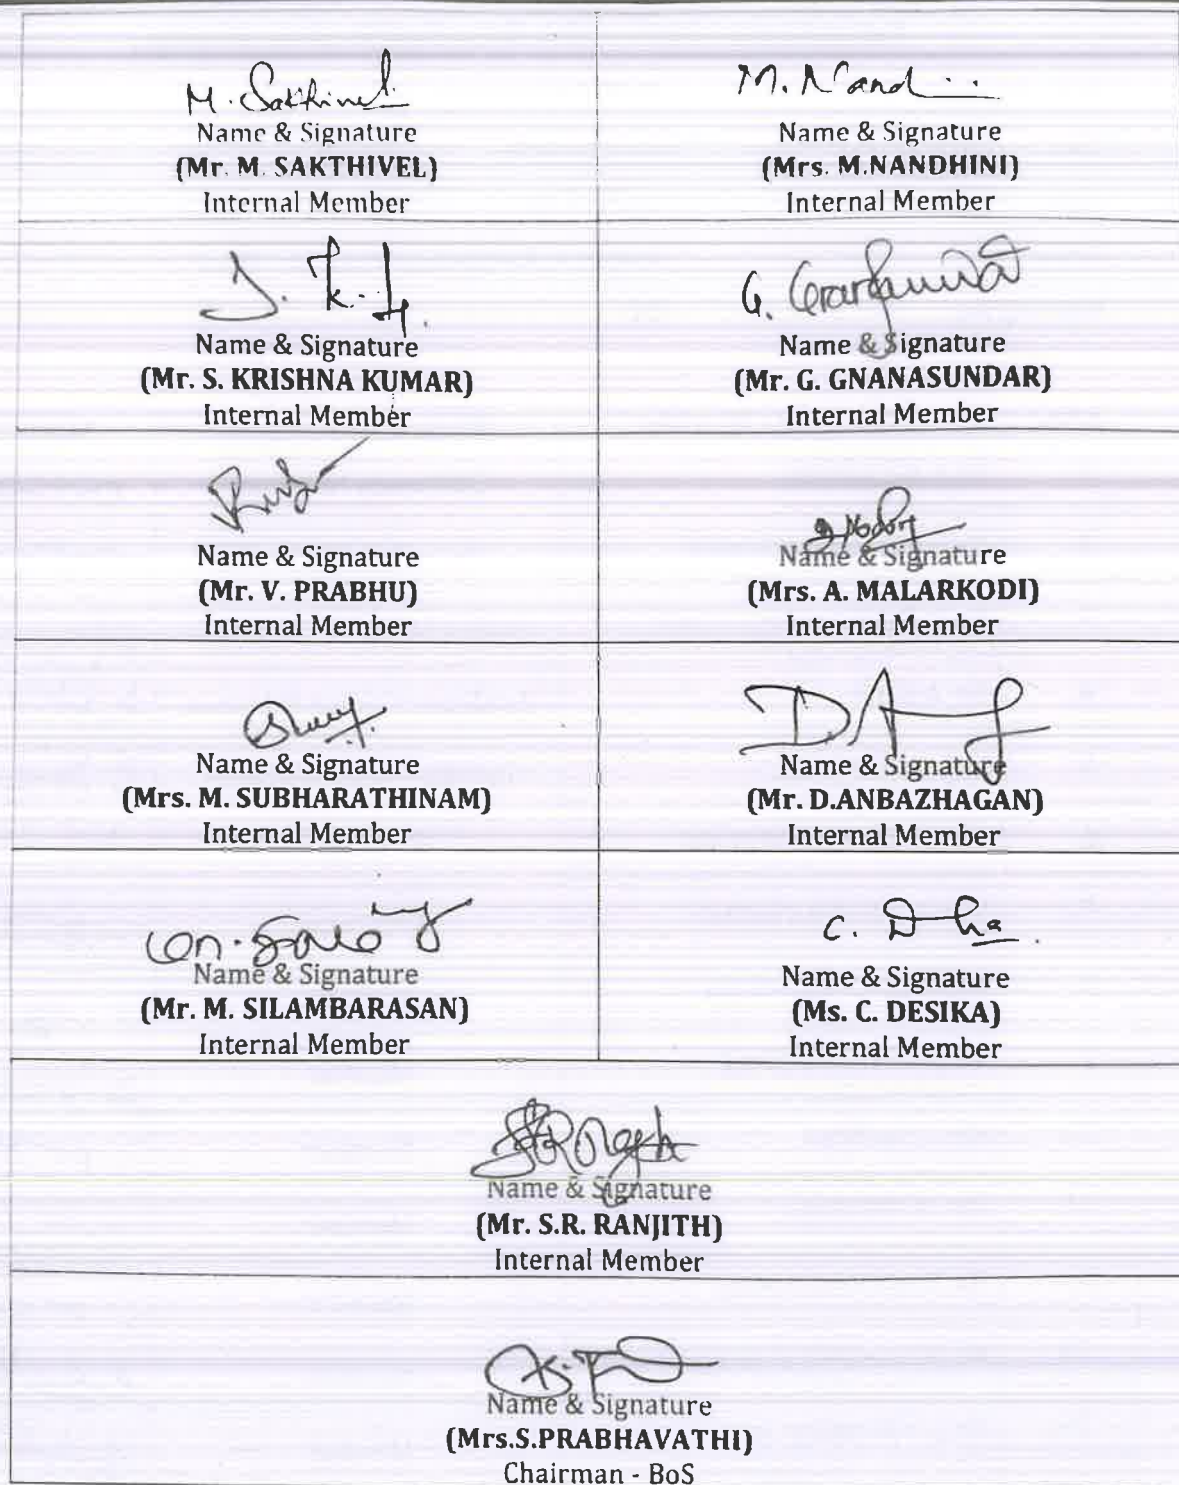 M. Sakthivel
Name & Signature
(Mr. M. SAKTHIVEL)
Internal Member
M. Nand
Name & Signature
(Mrs. M.NANDHINI)
Internal Member
Name & Signature
(Mr. S. KRISHNA KUMAR)
Internal Member
G.
Name & Signature
(Mr. G. GNANASUNDAR)
Internal Member
Name & Signature
(Mr. V. PRABHU)
Internal Member
Name & Signature
(Mrs. A. MALARKODI)
Internal Member
Name & Signature
(Mrs. M. SUBHARATHINAM)
Internal Member
Name & Signature
(Mr. D.ANBAZHAGAN)
Internal Member
Name & Signature
(Mr. M. SILAMBARASAN)
Internal Member
C.
Name & Signature
(Ms. C. DESIKA)
Internal Member
Name & Signature
(Mr. S.R. RANJITH)
Internal Member
Name & Signature
(Mrs.S.PRABHAVATHI)
Chairman - BoS